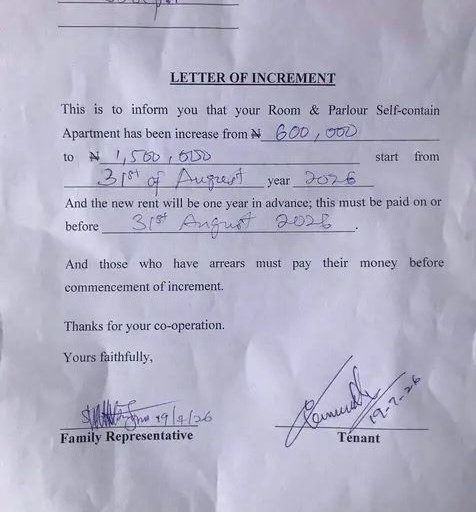 LETTER OF INCREMENT
This is to inform you that your Room & Parlour Self-contain
Apartment has been increase from ₦ 600,000
to ₦ 1,500,000 start from
31st of August year 2026
And the new rent will be one year in advance; this must be paid on or
before 31st August 2026.
And those who have arrears must pay their money before
commencement of increment.
Thanks for your co-operation.
Yours faithfully,
19/2/26
19-2-26
Family Representative Tenant